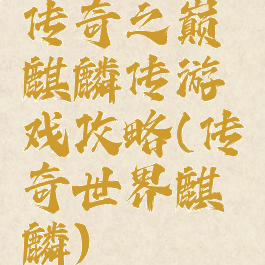 传奇之巅
麒麟传游
戏攻略(传
奇世界麒
麟)